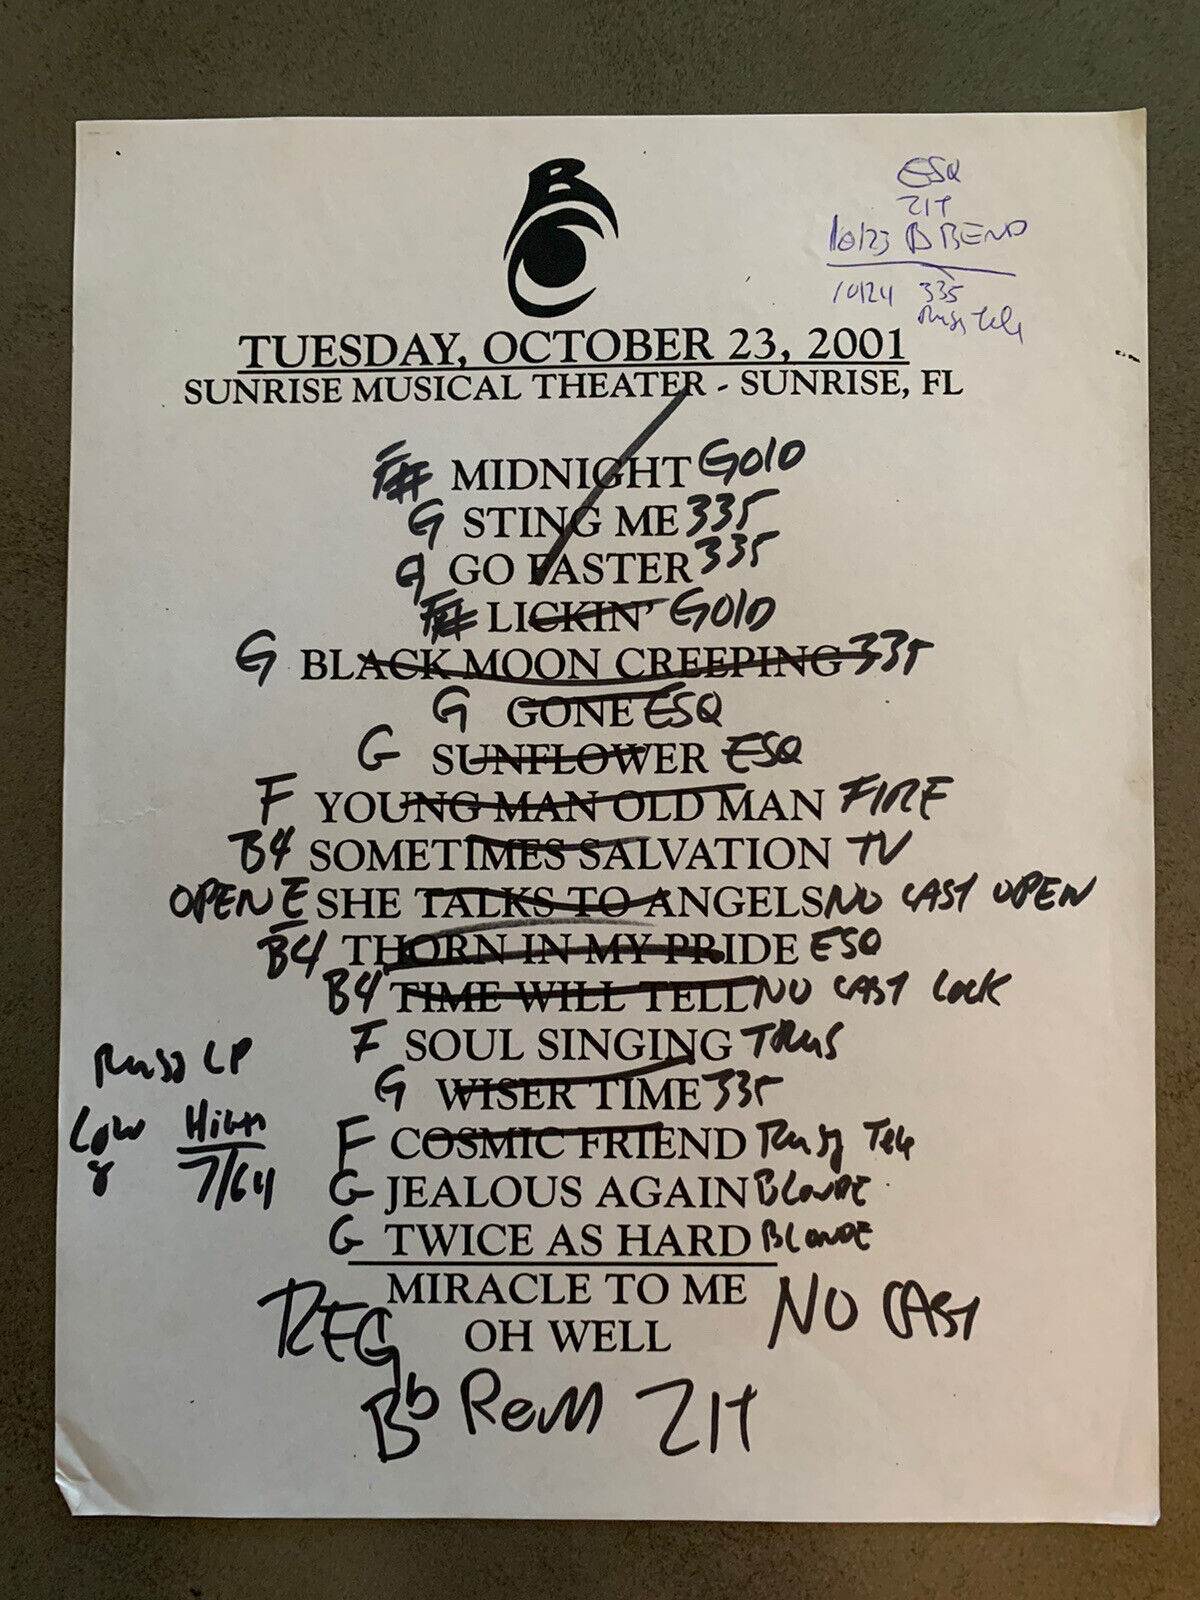 B
ESQ
ZIT
10/23 B BEND
10/24 335
Russ Tele
TUESDAY, OCTOBER 23, 2001
SUNRISE MUSICAL THEATER - SUNRISE, FL
F# MIDNIGHT GOLD
G STING ME 335
G GO FASTER 335
F# LICKIN' GOLD
G BLACK MOON CREEPING 335
G GONE ESQ
G SUNFLOWER ESQ
F YOUNG MAN OLD MAN FIRE
B4 SOMETIMES SALVATION TV
OPEN E SHE TALKS TO ANGELS NO CAST OPEN
B4 THORN IN MY PRIDE ESQ
B4 TIME WILL TELL NO CAST LOCK
F SOUL SINGING TRUS
Russ LP
G WISER TIME 335
Low High
8 7/64
F COSMIC FRIEND Russ Tele
G JEALOUS AGAIN BLONDE
G TWICE AS HARD BLONDE
MIRACLE TO ME NO CAST
REG OH WELL
Bb Rem ZIT